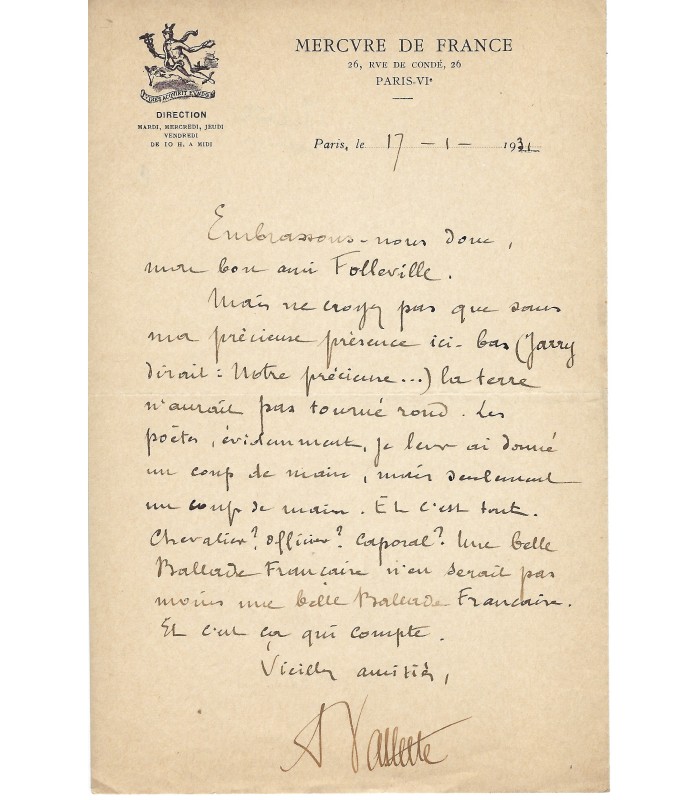 MERCVRE DE FRANCE
26, RVE DE CONDÉ, 26
PARIS-VIᵉ
VIRES ACQVIRIT EVNDO
DIRECTION
MARDI, MERCREDI, JEUDI
VENDREDI
DE 10 H. A MIDI
Paris, le 17 - 1 - 1931
Embrassons-nous donc,
mon bon ami Folleville.
Mais ne croyez pas que sans
ma précieuse présence ici-bas (Jarry
dirait : Notre précieuse...) la terre
n'aurait pas tourné rond. Les
poètes, évidemment, je leur ai donné
un coup de main, mais seulement
un coup de main. Et c'est tout.
Chevalier? Officier? Caporal? Une belle
Ballade Francaise n'en serait pas
moins une belle Ballade Francaise.
Et c'est ça qui compte.
Vieilles amitiés,
A Vallette